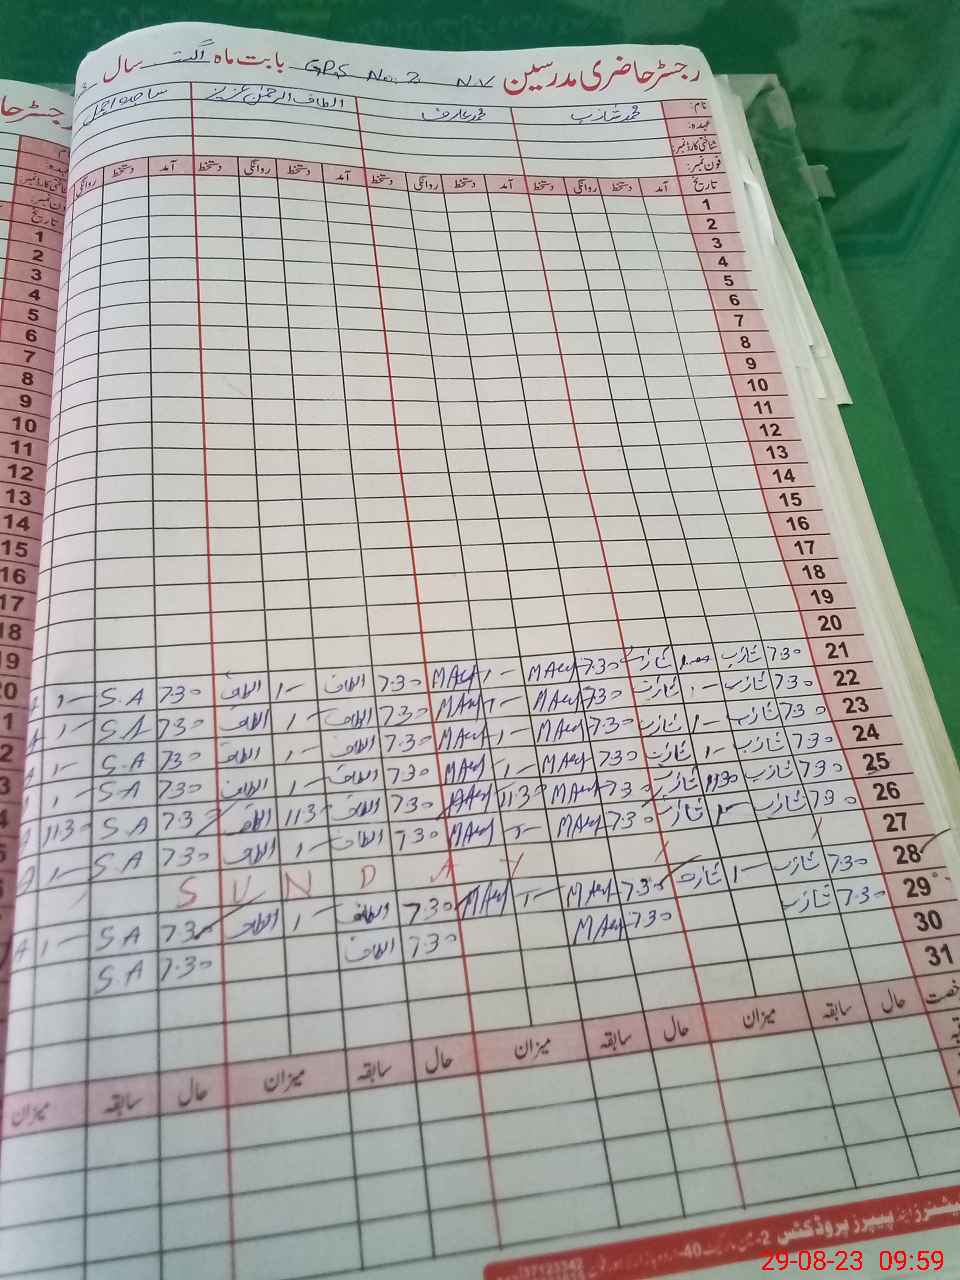 رجسٹر حاضری مدرسین GPS No. 2 N.V بابت ماہ اگست سال
نام: محمد شازب محمد عارف الطاف الرحمٰن عزیز ساجد اجمل
عہدہ:
شناختی کارڈ نمبر:
فون نمبر:
تاریخ آمد دستخط روانگی دستخط آمد دستخط روانگی دستخط آمد دستخط روانگی دستخط آمد دستخط روانگی
1
2
3
4
5
6
7
8
9
10
11
12
13
14
15
16
17
18
19
20
21 7.30 شازب شازب 7.30 MAry 1- MAry 7.30 الطاف 1- الطاف 7.30 S.A 1-
22 7.30 شازب 1- شازب 7.30 MAry 1- MAry 7.30 الطاف 1- الطاف 7.30 S.A 1-
23 7.30 شازب 1- شازب 7.30 MAry 1- MAry 7.30 الطاف 1- الطاف 7.30 S.A 1-
24 7.30 شازب 1- شازب 7.30 MAry 1- MAry 7.30 الطاف 1- الطاف 7.30 S.A
25 7.30 شازب 11.30 شازب 7.30 MAry 11.30 MAry 7.30 الطاف 11.30 الطاف 7.30 S.A 11.30
26 7.30 شازب شازب 7.30 MAry 1- MAry 7.30 الطاف 1- الطاف 7.30 S.A 1-
27 SUNDAY
28 7.30 شازب 1- شازب 7.30 MAry 1- MAry 7.30 الطاف 1- الطاف 7.30 S.A 1-
29 7.30 شازب 7.30 MAry 7.30 الطاف 7.30 S.A
30
31
حال سابقہ میزان حال سابقہ میزان حال سابقہ میزان حال سابقہ میزان
پیپرز پروڈکٹس
29-08-23 09:59